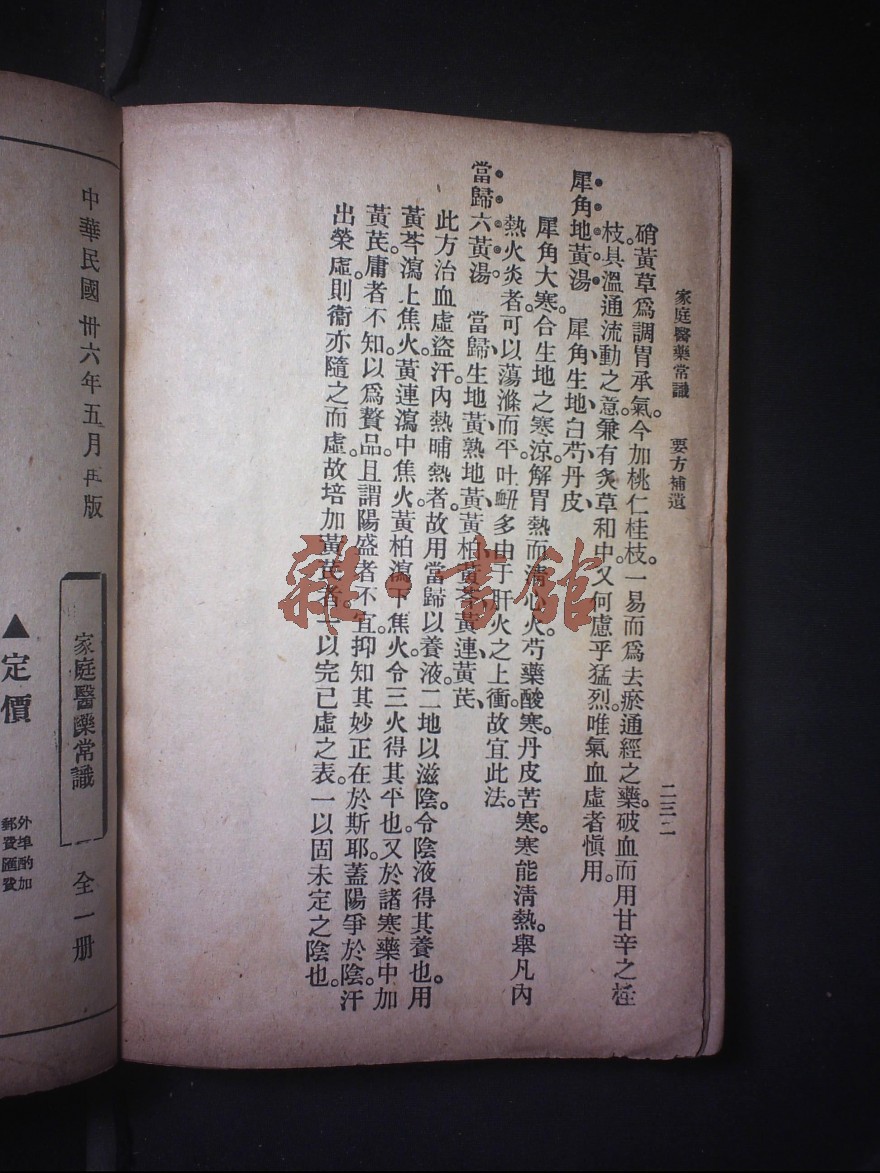 家庭醫藥常識　要方補遺　二三二
硝黃草爲調胃承氣。今加桃仁桂枝。一易而爲去瘀通經之藥。破血而用甘辛之桂
枝。具溫通流動之意。兼有炙草和中。又何慮乎猛烈。唯氣血虛者愼用。
犀角地黃湯。　犀角、生地、白芍、丹皮
犀角大寒。合生地之寒涼。解胃熱而淸心火。芍藥酸寒。丹皮苦寒。寒能淸熱。舉凡內
熱火炎者。可以蕩滌而平。吐衂多由于肝火之上衝。故宜此法。
當歸六黃湯　當歸、生地黃、熟地黃、黃柏、黃芩、黃連、黃芪、
此方治血虛盜汗。內熱晡熱者。故用當歸以養液。二地以滋陰。令陰液得其養也。用
黃芩瀉上焦火。黃連瀉中焦火。黃柏瀉下焦火。令三火得其平也。又於諸寒藥中加
黃芪。庸者不知。以爲贅品。且謂陽盛者不宜。抑知其妙正在於斯耶。蓋陽爭於陰。汗
出榮虛。則衞亦隨之而虛。故培加黃芪者。一以完已虛之表。一以固未定之陰也。
中華民國卅六年五月再版
家庭醫藥常識
全一册
▲定價
外埠酌加
郵費匯費
雜·書館